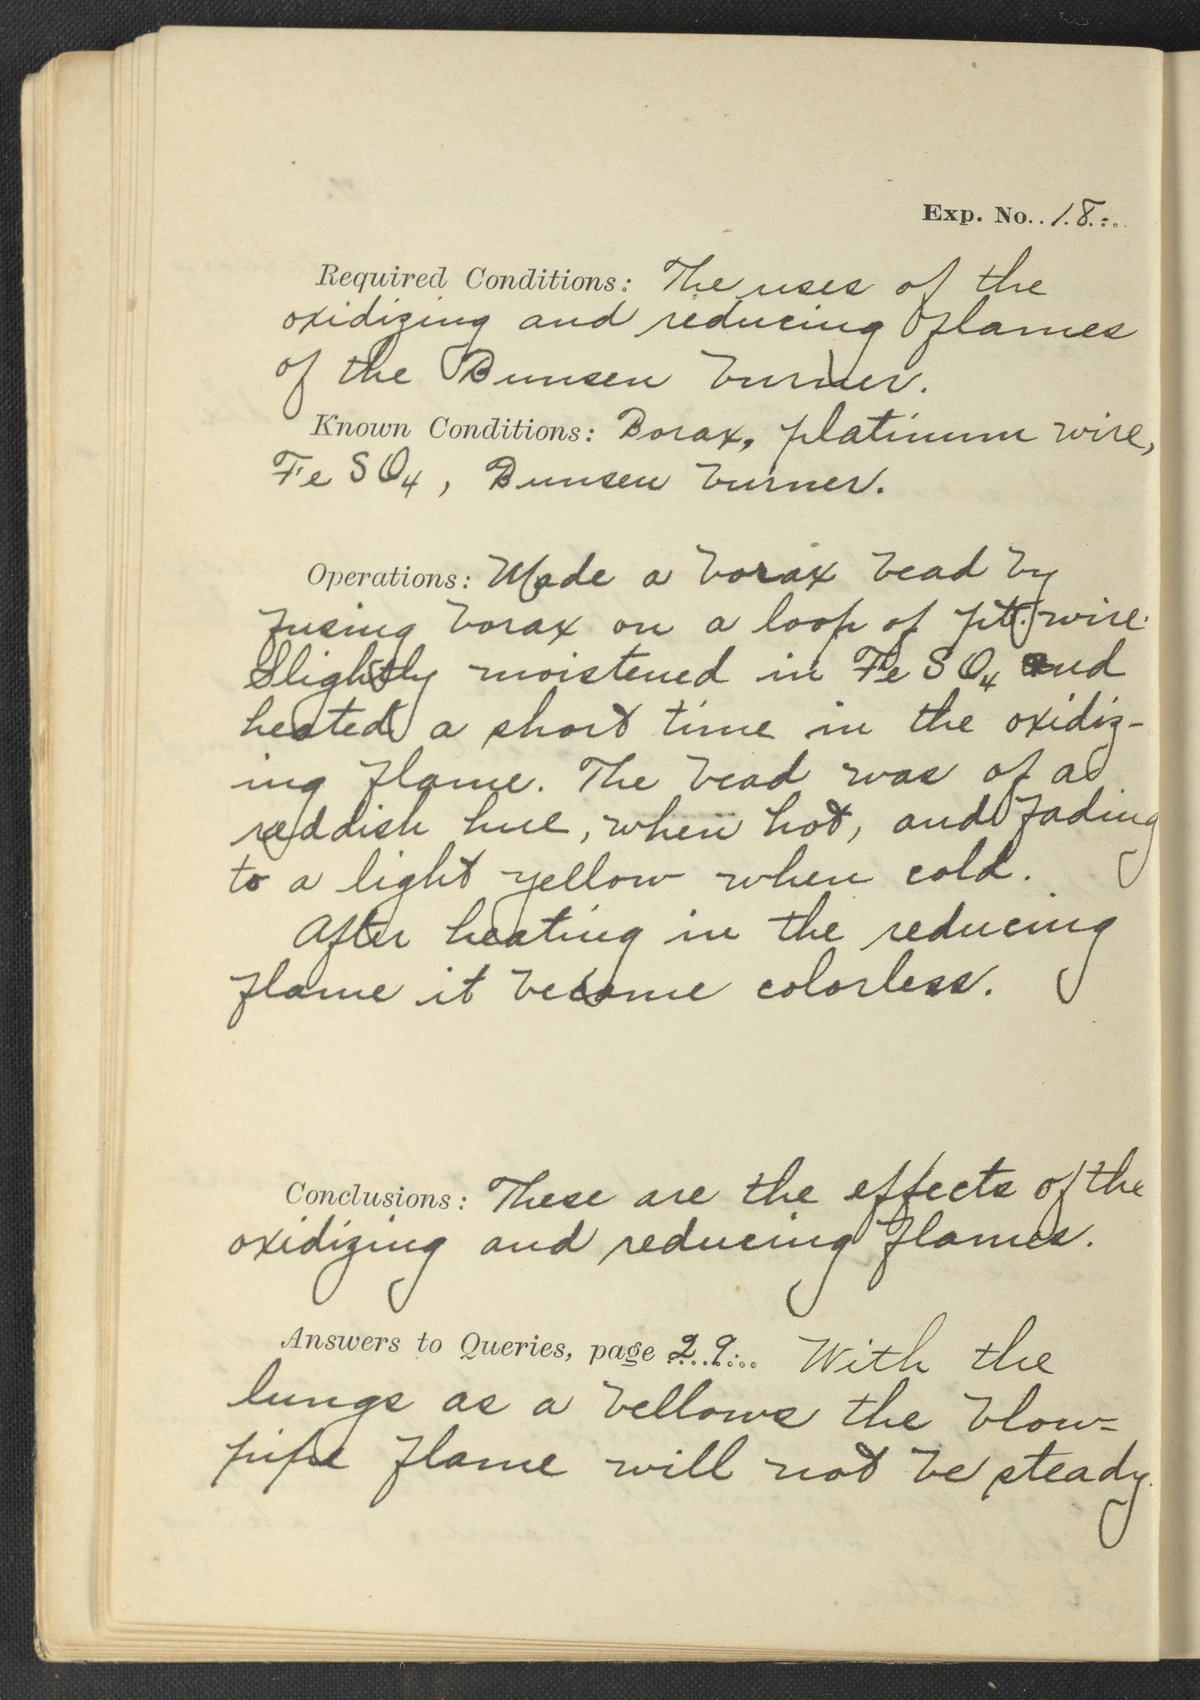 Exp. No. 18.
Required Conditions: The uses of the
oxidizing and reducing flames
of the Bunsen burner.
Known Conditions: Borax, platinum wire,
FeSO4, Bunsen burner.
Operations: Made a borax bead by
fusing borax on a loop of plt. wire.
Slightly moistened in FeSO4 and
heated a short time in the oxidiz-
ing flame. The bead was of a
reddish hue, when hot, and fading
to a light yellow when cold.
After heating in the reducing
flame it became colorless.
Conclusions: These are the effects of the
oxidizing and reducing flames.
Answers to Queries, page 29. With the
lungs as a bellows the blow=
pipe flame will not be steady.